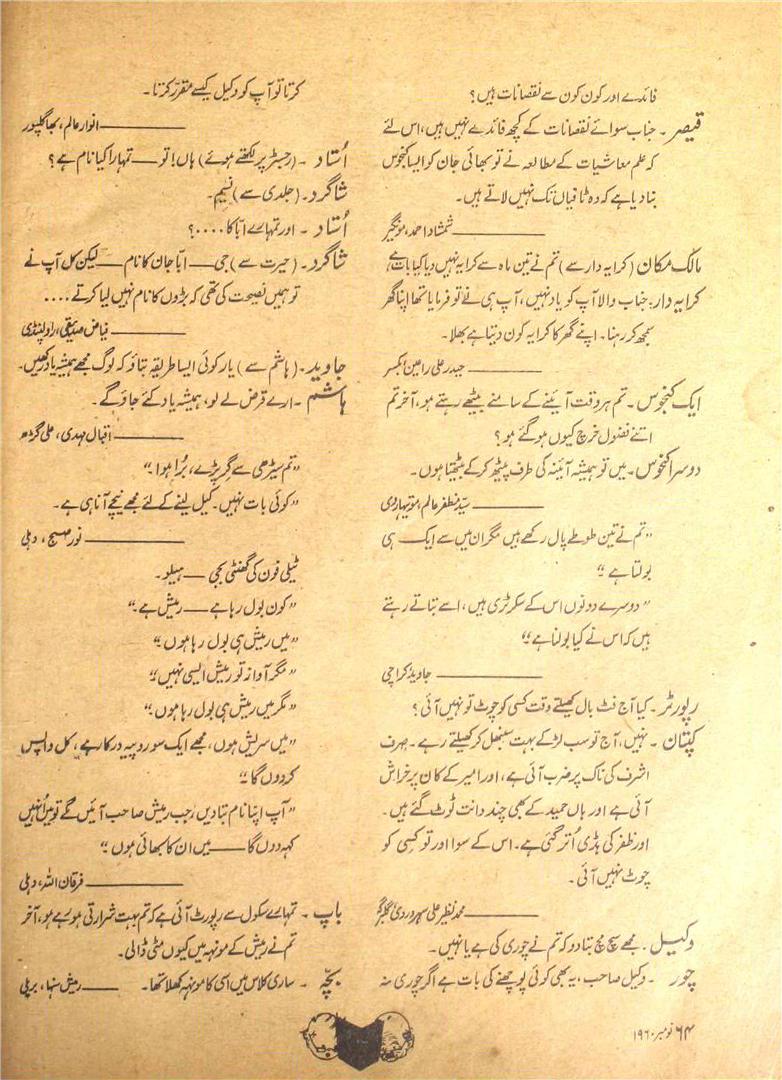 فائدے اور کون کون سے نقصانات ہیں؟
قیصر ۔ جناب سوائے نقصانات کے کچھ فائدے نہیں ہیں، اس لئے
کہ علم معاشیات کے مطالعہ نے تو بھائی جان کو ایسا کنجوس
بنا دیا ہے کہ وہ ٹافیاں تک نہیں لاتے ہیں۔
شمشاد احمد، مونگیر
مالک مکان (کرایہ دار سے) تم نے تین ماہ سے کرایہ نہیں دیا کیا بات ہے
کرایہ دار: جناب والا آپ کو یاد نہیں، آپ ہی نے تو فرمایا تھا اپنا گھر
سمجھ کر رہنا۔ اپنے گھر کا کرایہ کون دیتا ہے بھلا۔
حیدر علی رامین ایکسر
ایک کنجوس ۔ تم ہر وقت آئینے کے سامنے بیٹھے رہتے ہو، آخر تم
اتنے فضول خرچ کیوں ہو گئے ہو؟
دوسرا کنجوس ۔ میں تو ہمیشہ آئینہ کی طرف پیٹھ کر کے بیٹھتا ہوں۔
سیّد مظفر عالم، موتیہاروی
”تم نے تین طوطے پال رکھے ہیں مگر ان میں سے ایک ہی
بولتا ہے“
”دوسرے دونوں اس کے سکرٹری ہیں، اسے بتاتے رہتے
ہیں کہ اس نے کیا بولنا ہے“
جاوید کراچی
رپورٹر ۔ کیا آج فٹ بال کھیلتے وقت کسی کو چوٹ تو نہیں آئی؟
کپتان ۔ نہیں، آج تو سب لڑکے بہت سنبھل کر کھیلتے رہے ۔ صرف
اشرف کی ناک پر ضرب آئی ہے، اور امیر کے کان پر خراش
آئی ہے اور ہاں حمید کے بھی چند دانت ٹوٹ گئے ہیں۔
اور ظفر کی ہڈی اُتر گئی ہے۔ اس کے سوا اور تو کسی کو
چوٹ نہیں آئی۔
محمد نظیر علی سہروردی گلبرگہ
وکیل ۔ مجھے سچ مچ بتا دو کہ تم نے چوری کی ہے یا نہیں۔
چور ۔ وکیل صاحب، یہ بھی کوئی پوچھنے کی بات ہے اگر چوری نہ
کرتا تو آپ کو وکیل کیسے مقرّر کرتا۔
انوار عالم، بھاگلپور
اُستاد ۔ (رجسٹر پر لکھتے ہوئے) ہاں! تو — تمہارا کیا نام ہے؟
شاگرد ۔ (جلدی سے) نسیم۔
اُستاد ۔ اور تمہارے ابّا کا ....؟
شاگرد ۔ (حیرت سے) جی — ابّا جان کا نام — لیکن کل آپ نے
تو ہمیں نصیحت کی تھی کہ بڑوں کا نام نہیں لیا کرتے ....
فیاض صدیقی، راولپنڈی
جاوید ۔ (ہاشم سے) یار کوئی ایسا طریقہ بتاؤ کہ لوگ مجھے ہمیشہ یاد رکھیں۔
ہاشم ۔ ارے قرض لے لو، ہمیشہ یاد کئے جاؤ گے۔
اقبال مہدی، علی گڑھ
”تم سیڑھی سے گر پڑے، بُرا ہوا۔“
”کوئی بات نہیں۔ کیل لینے کے لئے مجھے نیچے آنا ہی ہے۔
نور صبیح، دہلی
ٹیلی فون کی گھنٹی بجی — ہیلو۔
”کون بول رہا ہے — رمیش ہے۔“
”میں رمیش ہی بول رہا ہوں۔“
”مگر آواز تو رمیش ایسی نہیں“
”مگر میں رمیش ہی بول رہا ہوں۔“
”میں سریش ہوں، مجھے ایک سو روپیہ درکار ہے، کل واپس
کر دوں گا۔“
”آپ اپنا نام بتا دیں جب رمیش صاحب آئیں گے تو میں اُنہیں
کہہ دوں گا — میں ان کا بھائی ہوں۔“
فرقان اللہ، دہلی
باپ ۔ تمہارے سکول سے رپورٹ آئی ہے کہ تم بہت شرارتی ہو رہے ہو، آخر
تم نے رمیش کے مونہہ میں کیوں مٹی ڈالی۔
بچّہ ۔ ساری کلاس میں اسی کا مونہہ کھلا تھا۔ — رمیش سنہا، بریلی
۶۴ نومبر ۱۹۶۰